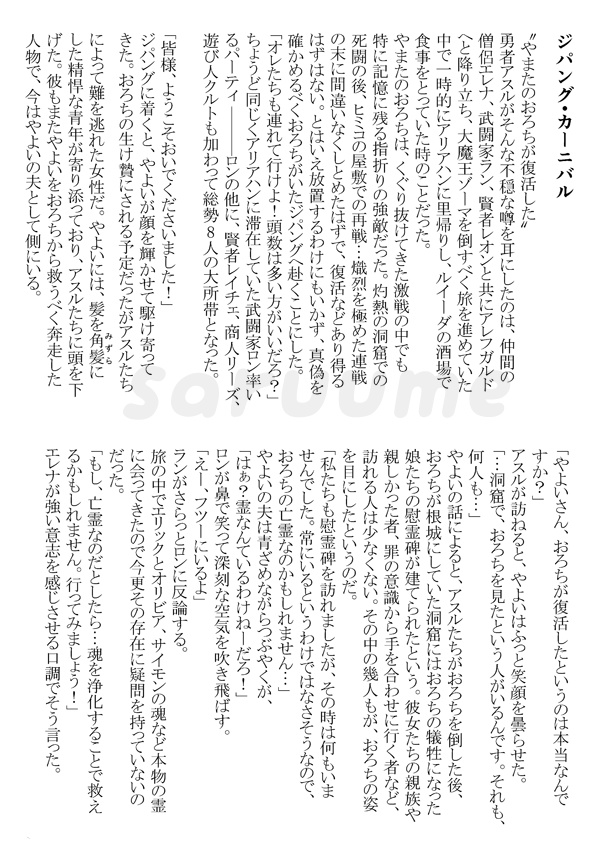 ジパング・カーニバル
〝やまたのおろちが復活した〟
勇者アスルがそんな不穏な噂を耳にしたのは、仲間の
僧侶エレナ、武闘家ラン、賢者レオンと共にアレフガルド
へと降り立ち、大魔王ゾーマを倒すべく旅を進めていた
中で一時的にアリアハンに里帰りし、ルイーダの酒場で
食事をとっていた時のことだった。
やまたのおろちは、くぐり抜けてきた激戦の中でも
特に記憶に残る指折りの強敵だった。灼熱の洞窟での
死闘の後、ヒミコの屋敷での再戦…熾烈を極めた連戦
の末に間違いなくしとめたはずで、復活などあり得る
はずはない。とはいえ放置するわけにもいかず、真偽を
確かめるべくおろちがいたジパングへ赴くことにした。
「オレたちも連れて行けよ！頭数は多い方がいいだろ？」
ちょうど同じくアリアハンに滞在していた武闘家ロン率い
るパーティ――ロンの他に、賢者レイチェ、商人リーズ、
遊び人クルトも加わって総勢８人の大所帯となった。
「皆様、ようこそおいでくださいました！」
ジパングに着くと、やよいが顔を輝かせて駆け寄って
きた。おろちの生け贄にされる予定だったがアスルたち
によって難を逃れた女性だ。やよいには、髪を角髪に
みずら
した精悍な青年が寄り添っており、アスルたちに頭を下
げた。彼もまたやよいをおろちから救うべく奔走した
人物で、今はやよいの夫として側にいる。
「やよいさん、おろちが復活したというのは本当なんで
すか？」
アスルが訪ねると、やよいはふっと笑顔を曇らせた。
「…洞窟で、おろちを見たという人がいるんです。それも、
何人も…」
やよいの話によると、アスルたちがおろちを倒した後、
おろちが根城にしていた洞窟にはおろちの犠牲になった
娘たちの慰霊碑が建てられたという。彼女たちの親族や
親しかった者、罪の意識から手を合わせに行く者など、
訪れる人は少なくない。その中の幾人もが、おろちの姿
を目にしたというのだ。
「私たちも慰霊碑を訪れましたが、その時は何もいま
せんでした。常にいるというわけではなさそうなので、
おろちの亡霊なのかもしれません…」
やよいの夫は青ざめながらつぶやくが、
「はぁ？霊なんているわけねーだろ！」
ロンが鼻で笑って深刻な空気を吹き飛ばす。
「えー、フツーにいるよ」
ランがさらっとロンに反論する。
旅の中でエリックとオリビア、サイモンの魂など本物の霊
に会ってきたので今更その存在に疑問を持っていないの
だった。
「もし、亡霊なのだとしたら…魂を浄化することで救え
るかもしれません。行ってみましょう！」
エレナが強い意志を感じさせる口調でそう言った。